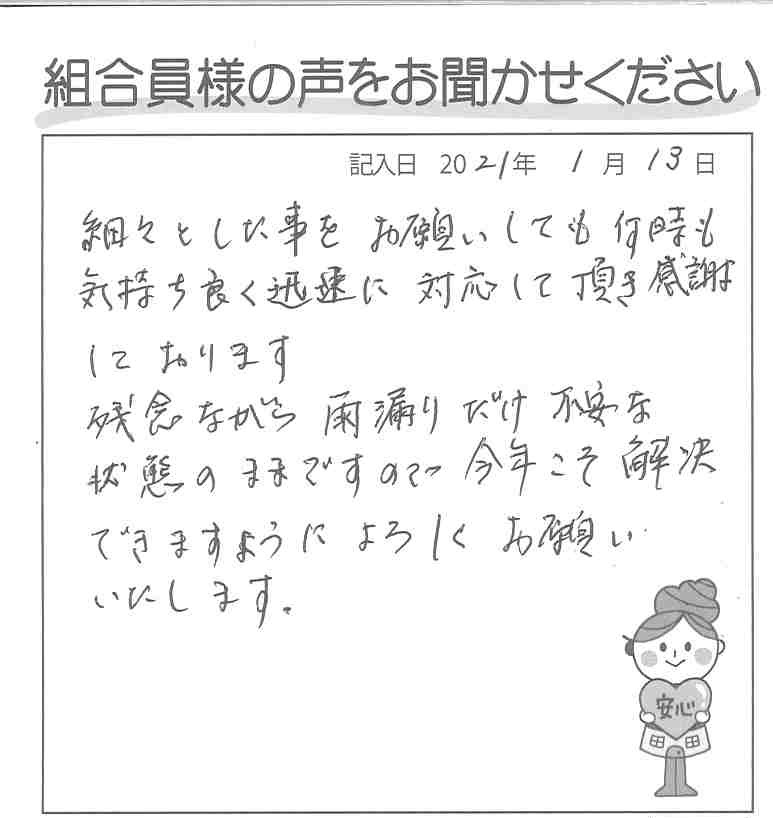 組合員様の声をお聞かせください
記入日 2021年 1月 13日
細々とした事を お願いしても 何時も
気持ち良く迅速に 対応して頂き感謝は
しております
残念ながら 雨漏りだけ 不安な
状態のままですので 今年こそ 解決
できますように よろしく お願い
いたします。
安心